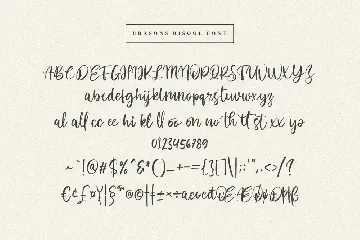 DRASONS BISQOL FONT
ABCDEFGHIJKLMNOPQRSTUVWXYZ
abcdefghijklmnopqrstuvwxyz
al all cc ee hi kl ll oo on no th tt st xx yo
0123456789
~`!@#$%^&*()_+-={}[]\|;:'",.<>/?